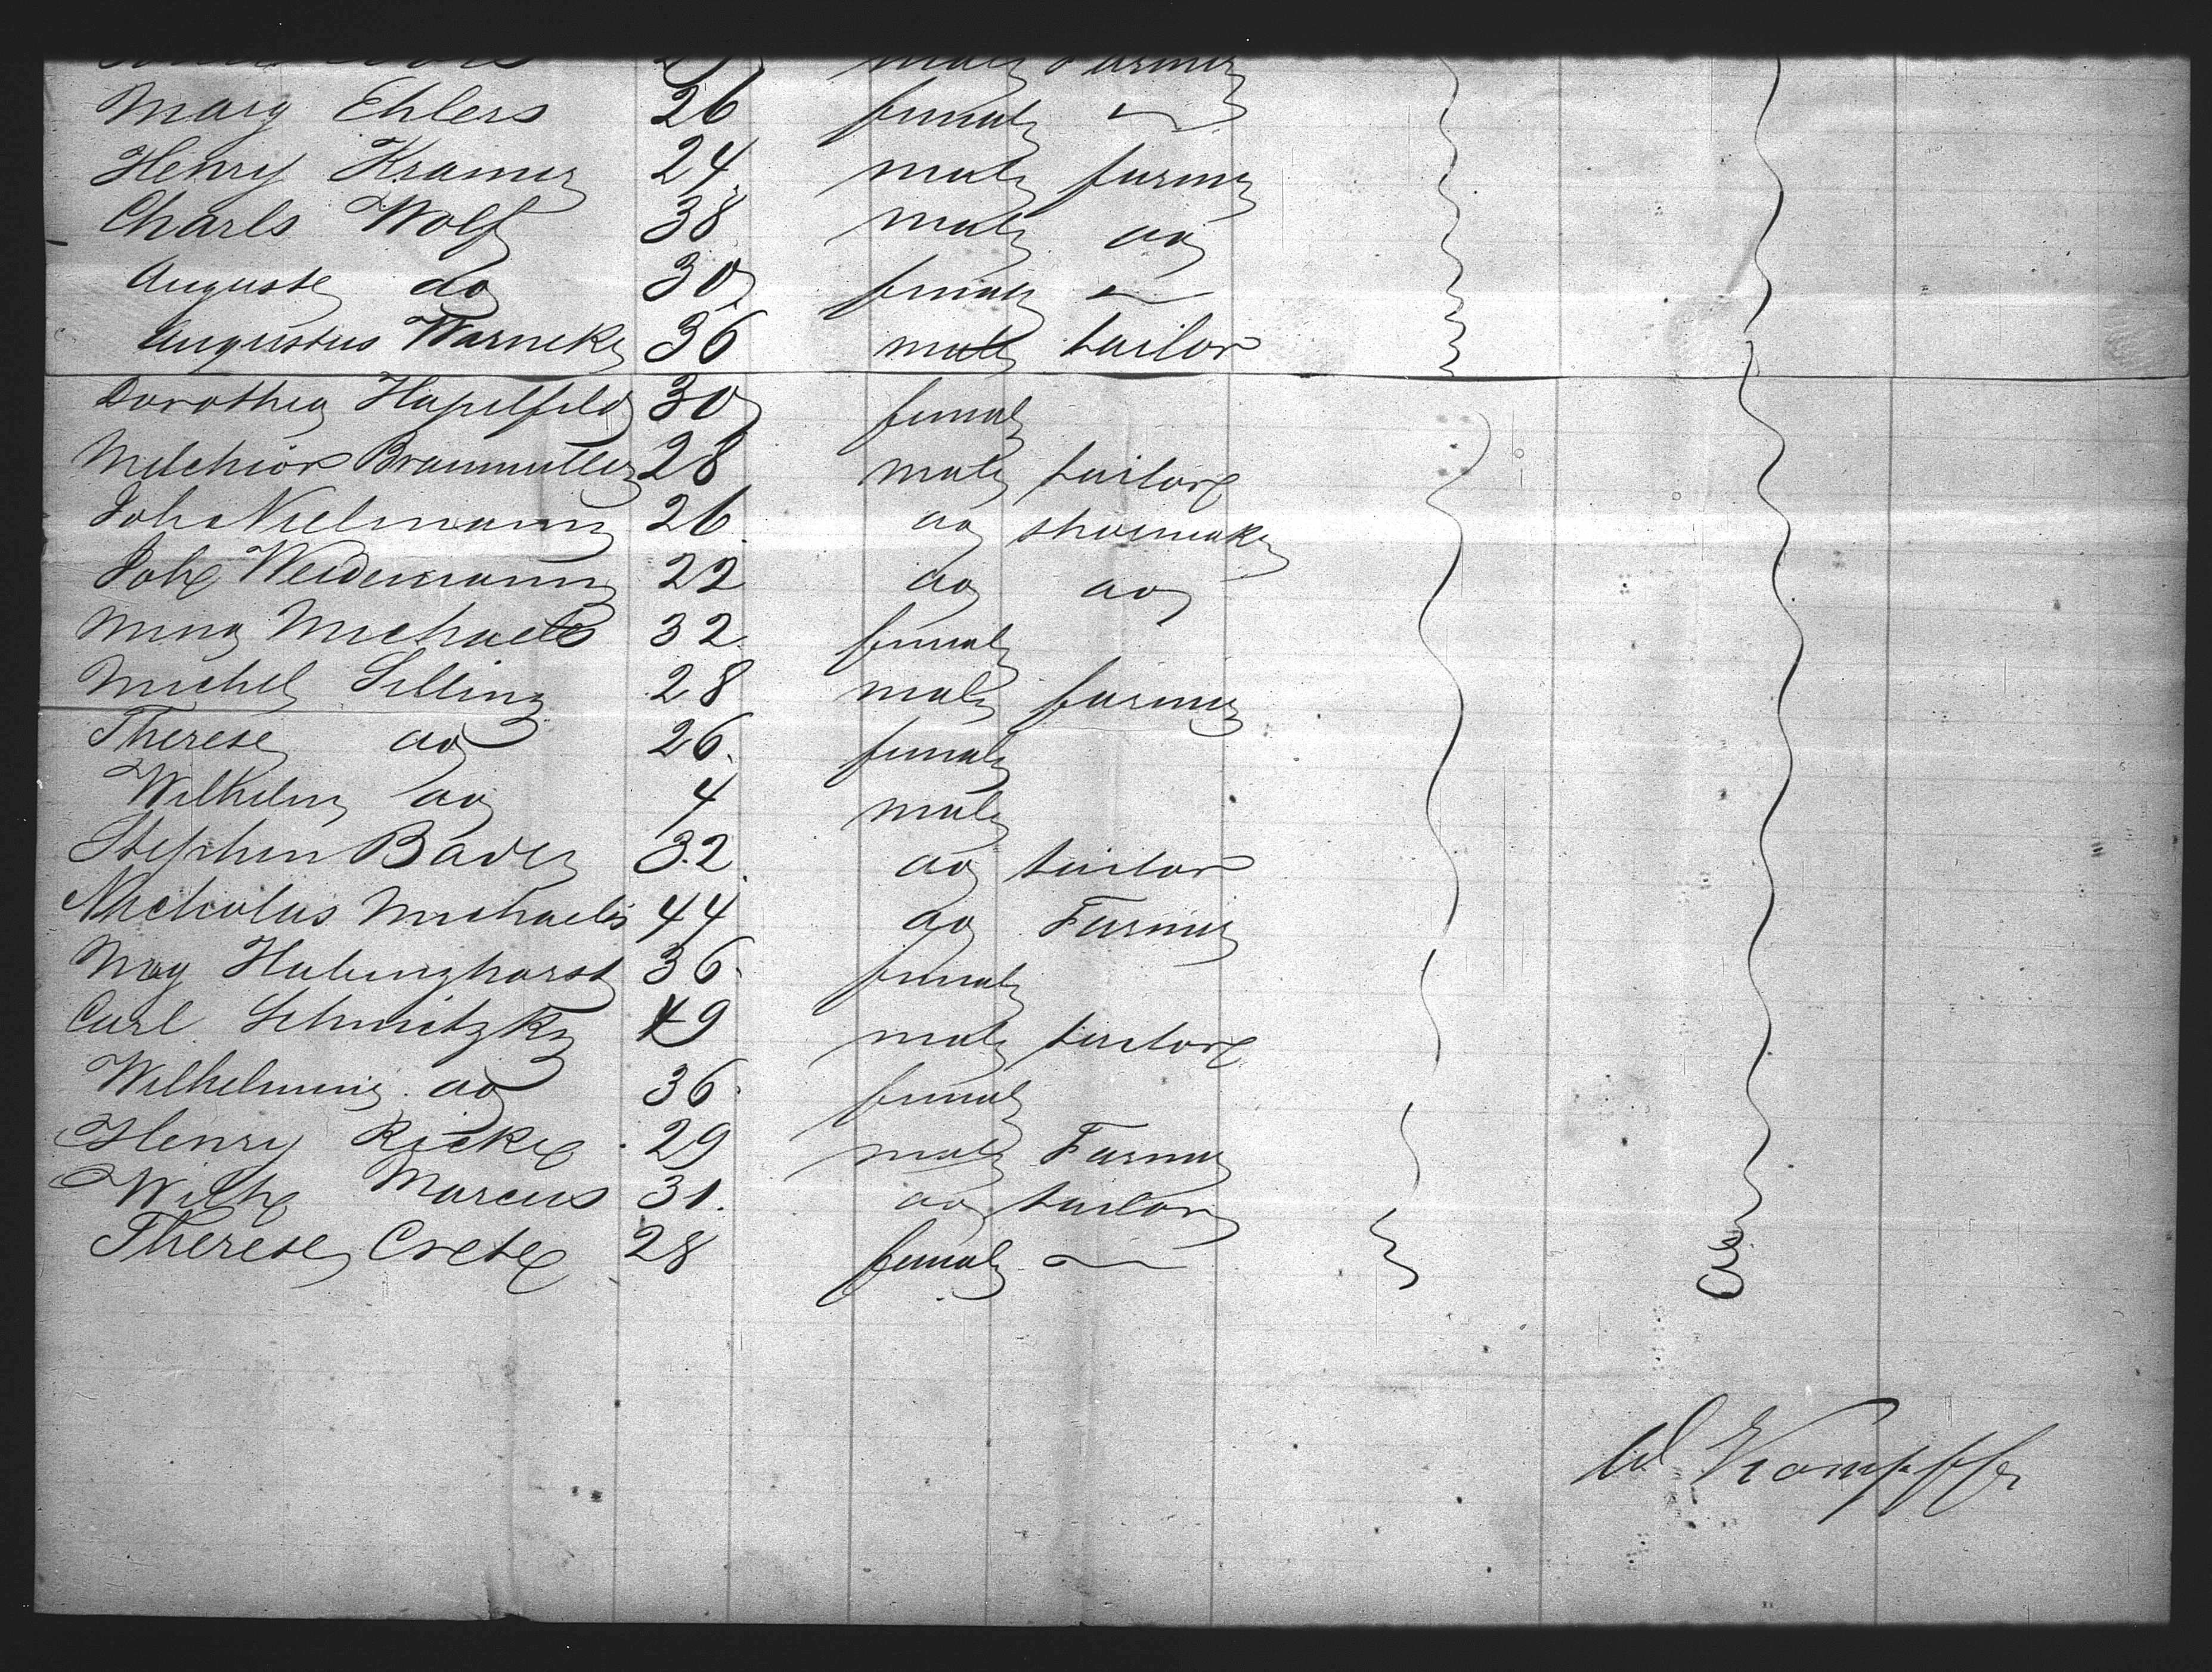 male Farmer
Mary Ehlers 26 female
Henry Kramer 24 male farmer
Charls Wolf 38 male do
Auguste do 30 female
Augustus Warneke 36 male tailor
Dorothea Hapelfeld 30 female
Melchior Braumuller 28 male tailor
Joh Nielmann 26 do shoemaker
Joh Weidemann 22 do do
Mina Michaels 32 female
Michel Selling 28 male farmer
Therese do 26 female
Wilhelm do 4 male
Stephen Bader 32 do tailor
Nicholus Michaelis 44 do Farmer
May 36 female
Carl Schmitzky 49 male tailor
Wilhelmine do 36 female
Henry Ricke 29 male Farmer
Wilh Marcus 31 do tailor
Therese Crete 28 female
W Kampffer